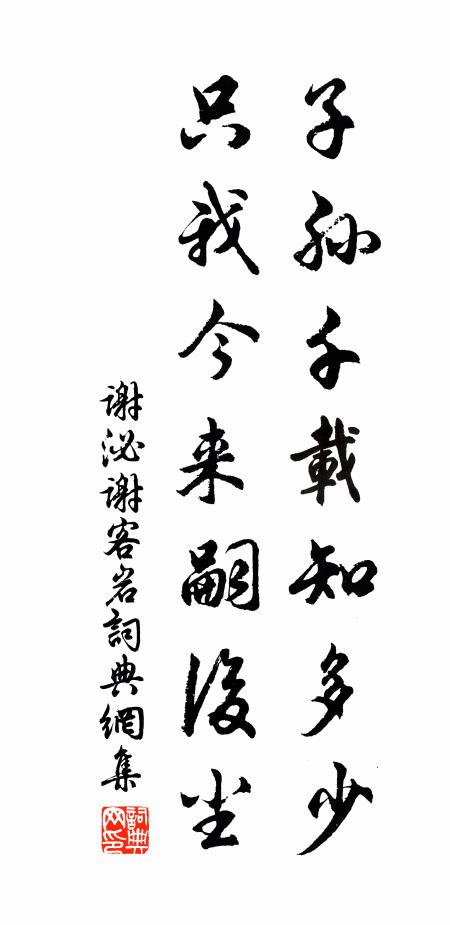 子孙千載知多少
只我今来嗣後尘
谢泌谢客岩詞典網集
詞典网印